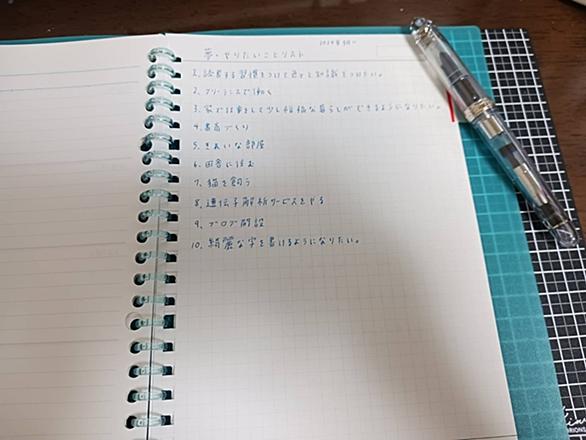 夢・やりたいことリスト
1. 読書する習慣をつけて色々と知識をつけたい。
2. フリーランスで働く
3. 家で仕事をして少し裕福な暮らしができるようになりたい。
4. 書斎づくり
5. きれいな部屋
6. 田舎に住む
7. 猫を飼う
8. 遺伝子解析サービスをやる
9. ブログ開設
10. 綺麗な字を書けるようになりたい。